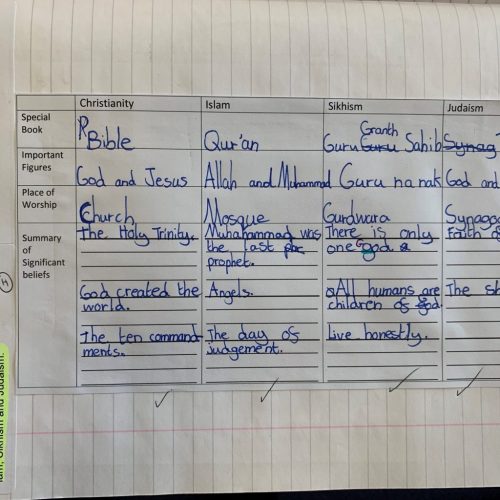 Christianity Islam Sikhism Judaism
Special Book
Bible
Qur'an
Guru Granth Sahib
Important Figures
God and Jesus
Allah and Muhammad
Guru nanak
God and
Place of Worship
Church
Mosque
Gurdwara
Summary of Significant beliefs
The Holy Trinity.
Muhammad was
the last
prophet.
There is only
one god
Faith
God created the
world.
Angels.
All humans are
children of god.
The
The ten command-
ments.
The day of
Judgement.
Live honestly.
Islam, Sikhism and Judaism.